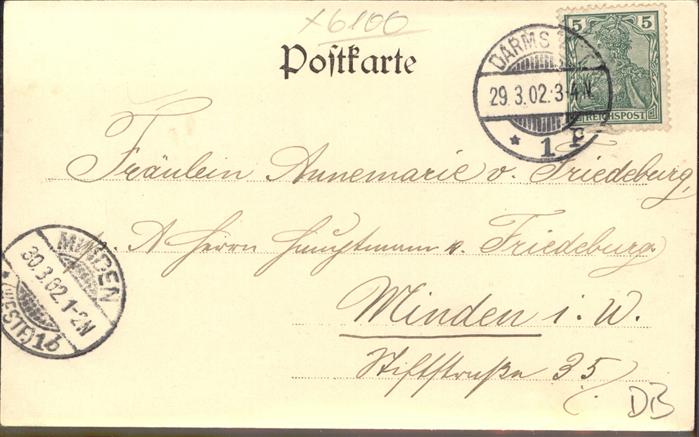 x6100
Postkarte
5 5
REICHSPOST
DARMS
29.3.02.3-4.N.
* 1 P
Fräulein Annemarie v. Friedeburg,
A Herrn Hauptmann v. Friedeburg
Minden i. W.
Stiftstraße 35
MINDEN
30.3.02.1-2N
(WESTF.) 1b
DB